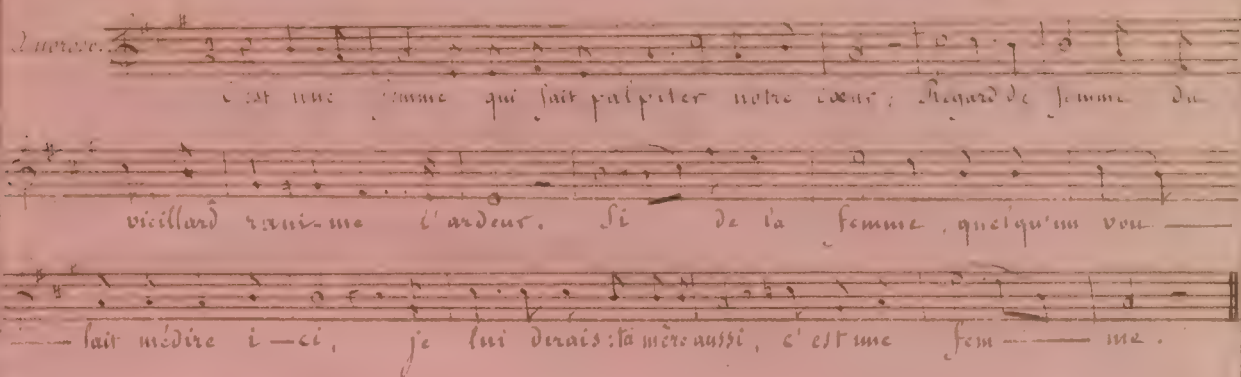 Amoroso.
c'est une femme qui fait palpiter notre cœur ; Regard de femme du
vieillard rani-me l'ardeur. Si de la femme, quelqu'un vou —
— lait médire i — ci, je lui dirais : ta mère aussi, c'est une fem — me.